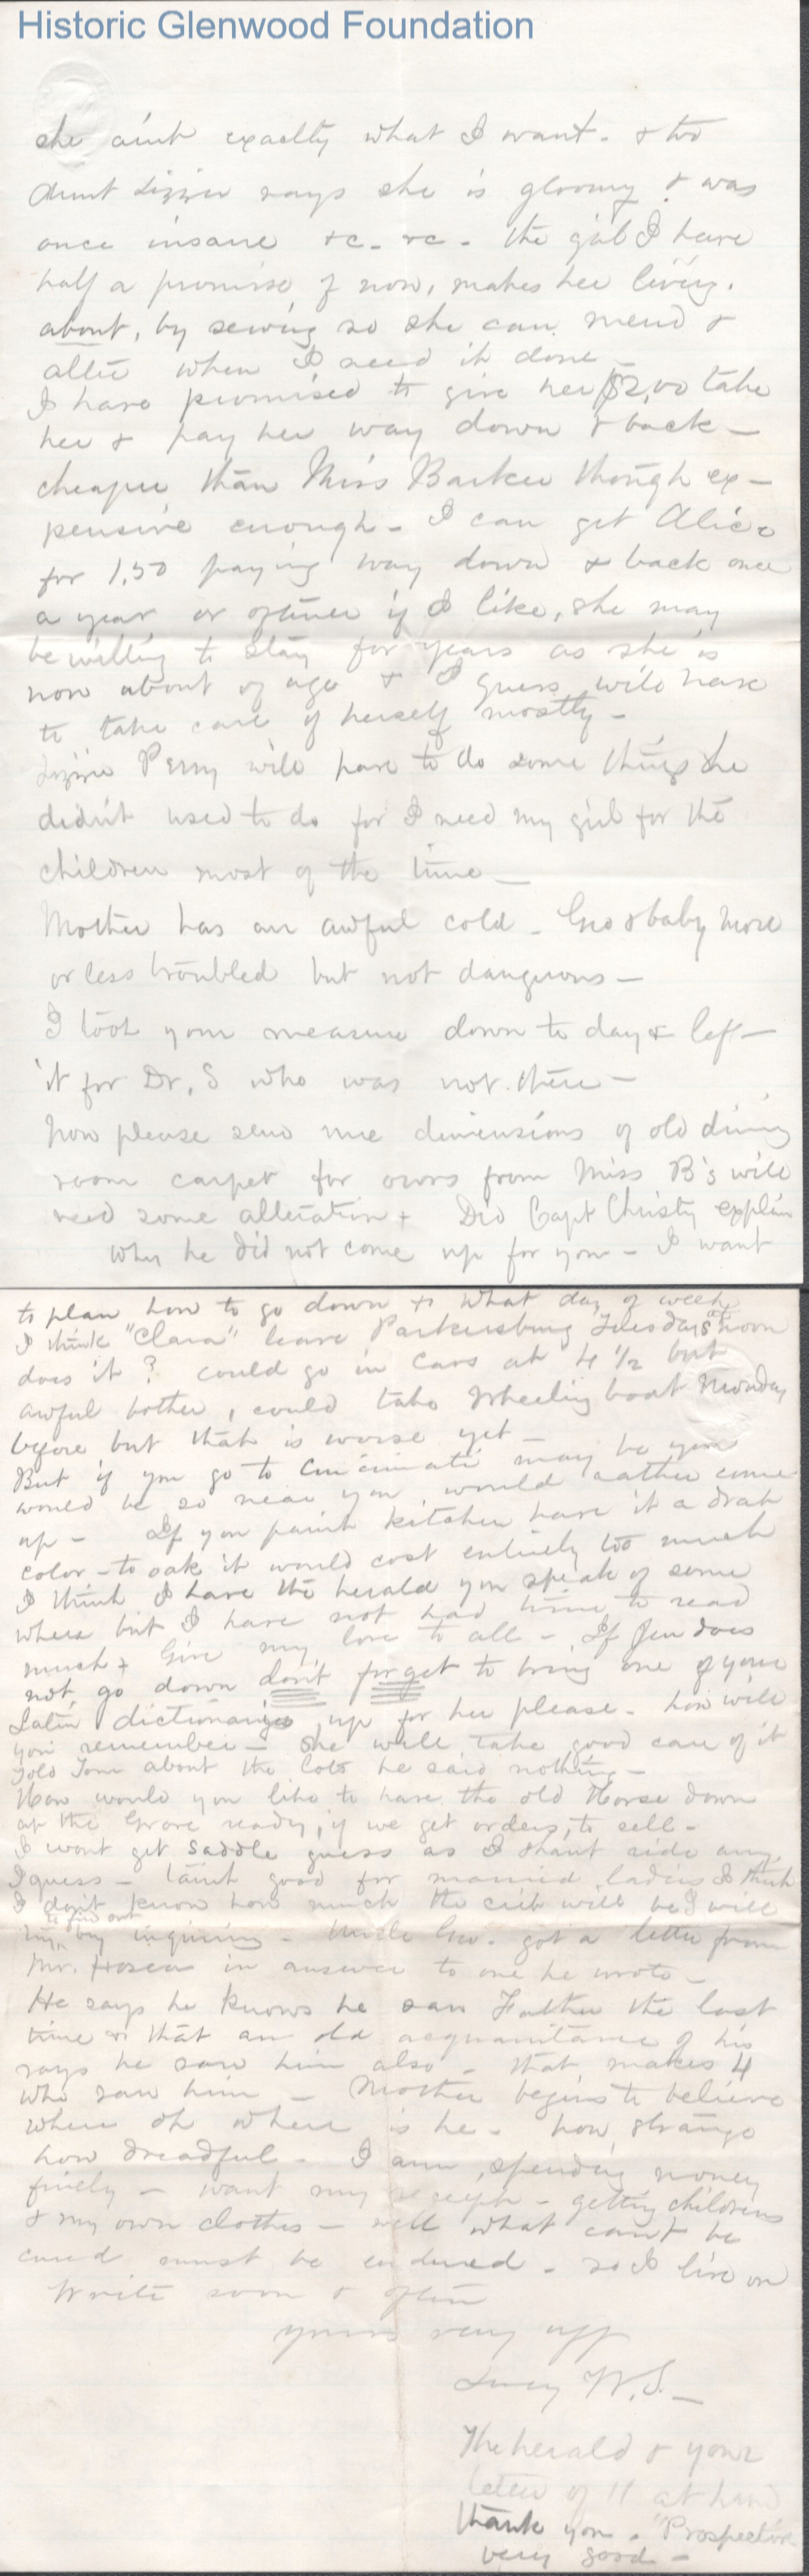 Historic Glenwood Foundation
she aint exactly what I want. & too
Aunt Lizzie says she is gloomy & was
once insane &c. &c. The girl I have
half a promise of now, makes her living.
about, by sewing so she can mend &
alter when I need it done -
I have promised to give her $2,00 take
her & pay her way down & back -
cheaper than Miss Barker though ex-
pensive enough - I can get Alice
for 1,50 paying way down & back once
a year or oftener if I like, she may
be willing to stay for years as she is
now about of age & I guess will have
to take care of herself mostly -
Lizzie Perry will have to do some things she
didn't used to do for I need my girl for the
children most of the time -
Mother has an awful cold - Geo & baby more
or less troubled but not dangerous -
I took your measure down to day & left
it for Dr, S who was not there -
now please send me dimensions of old dining
room carpet for ours from Miss B's will
need some alteration + Did Capt Christy explain
why he did not come up for you - I want
to plan how to go down & what day of week
I think "Clara" leave Parkersburg Tuesdays noon
does it? could go in Cars at 4 1/2 but
awful bother, could take Wheeling boat Monday
before but that is worse yet -
But if you go to Cincinnati may be you
would be so near you would rather come
up - If you paint kitchen have it a drab
color - to oak it would cost entirely too much
I think I have the herald you speak of some
where but I have not had time to read
much + Give my love to all - If Jen does
not go down don't forget to bring one of your
Latin dictionaries up for her please - how will
you remember - She will take good care of it
Told Tom about the Cots he said nothing -
How would you like to have the old Horse down
at the Grove ready, if we get orders, to sell -
I wont get saddle guess as I shant ride any.
I guess - taint good for married ladies I think
I don't know how much the crib will be I will
try to find out by inquiring - Uncle Geo. got a letter from
Mr. Hosea in answer to one he wrote -
He says he knows he saw Father the last
time & that an old acquaintance of his
says he saw him also - that makes 4
who saw him - Mother begins to believe
where oh where is he - how strange
how dreadful - I am spending money
finely - want my receipt - getting childrens
& my own clothes - well what cant be
cured must be endured - so I live on
Write soon & often
yours very aff
Lucy W. S. -
The herald & your
letter of 11 at hand
thank you. "Prospective
very good -